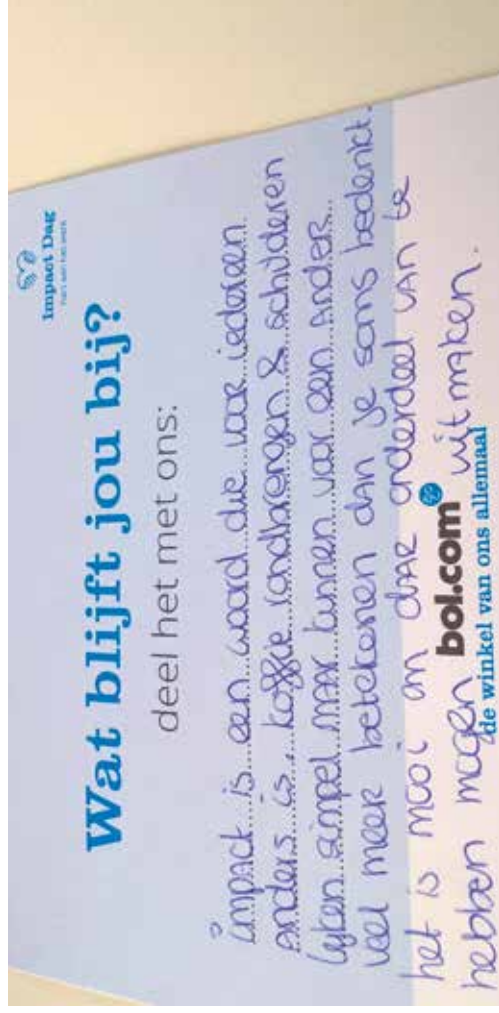 Impact Dag
Wat blijft jou bij?
deel het met ons:
impact is een woord die voor iedereen
anders is. koffie rondbrengen & schilderen
lijken simpel maar kunnen voor een ander
veel meer betekenen dan je soms bedenkt.
het is mooi om daar onderdeel van te
hebben mogen uit maken.
bol.com
de winkel van ons allemaal